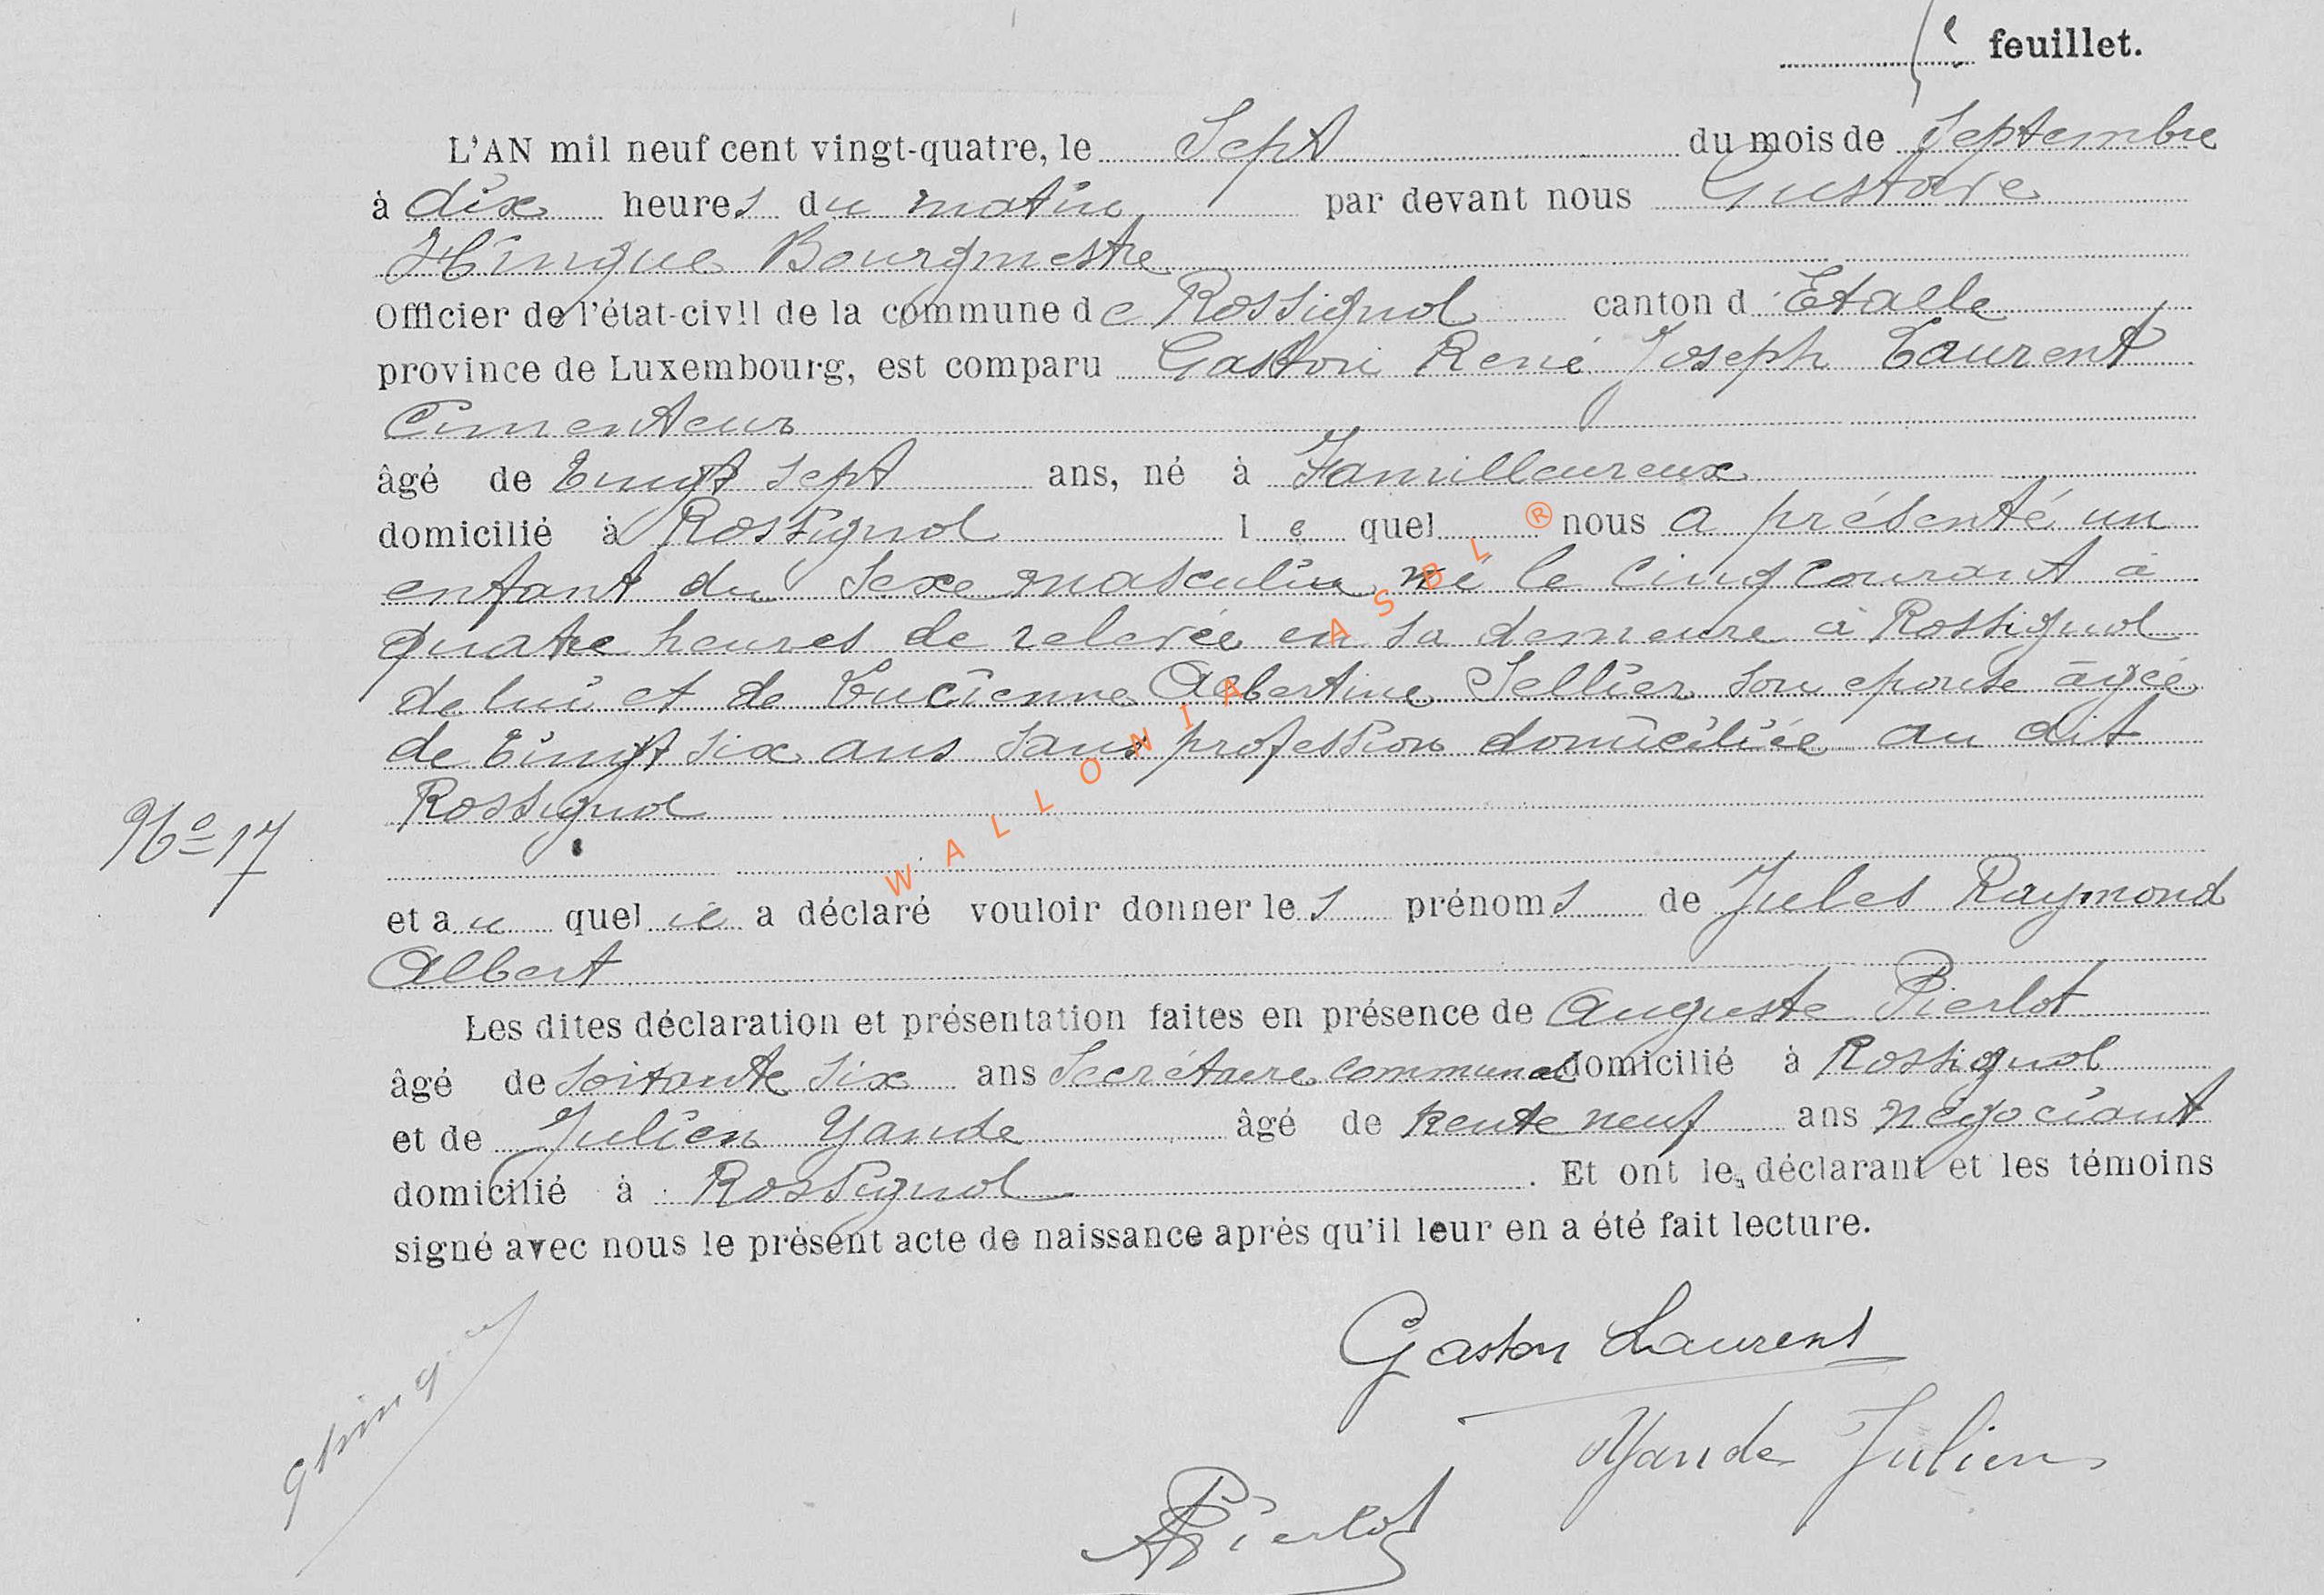 5e feuillet.
L'AN mil neuf cent vingt-quatre, le Sept du mois de Septembre
à dix heures du matin par devant nous Gustave
Hinque Bourgmestre
Officier de l'état-civil de la commune de Rossignol canton d'Etalle
province de Luxembourg, est comparu Gaston René Joseph Laurent
Cimenteur
âgé de Vingt sept ans, né à Familleureux
domicilié à Rossignol le quel nous a présenté un
enfant du sexe masculin né le cinq courant à
quatre heures de relevée en sa demeure à Rossignol
de lui et de Lucienne Albertine Sellier son epouse âgée
de Vingt six ans sans profession domiciliée au dit
Rossignol
No 17
et au quel il a déclaré vouloir donner les prénoms de Jules Raymond
Albert
Les dites déclaration et présentation faites en présence de Auguste Pierlot
âgé de soixante six ans Secrétaire communal domicilié à Rossignol
et de Julien Yande âgé de trente neuf ans négociant
domicilié à Rossignol. Et ont le déclarant et les témoins
signé avec nous le présent acte de naissance après qu'il leur en a été fait lecture.
Gaston Laurent
Yande Julien
A Pierlot
G Hinque
WALLONIA ASBL ®